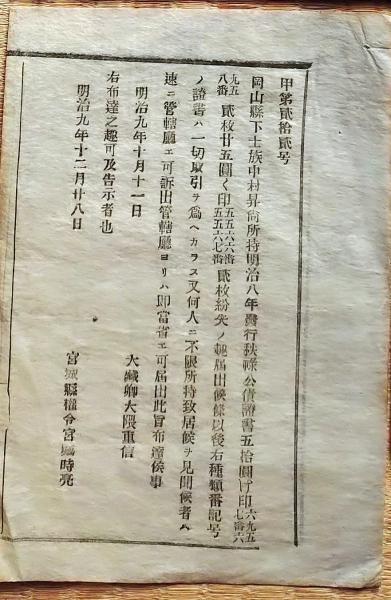 甲第貳拾貳号
岡山縣下士族中村昇尙所持明治八年發行秩祿公債證書五拾圓け印六九五七番六
九五八番貳枚廿五圓く印五五六六番五五六七番貳枚紛失ノ趣届出候條以後右種類番記号
ノ證書ハ一切取引ヲ爲ヘカラス又何人ニ不限所持致居候ヲ見聞候者ハ
速ニ管轄廳エ可訴出管轄廳ヨリハ即當省エ可届出此旨布達候事
明治九年十月十一日
大藏卿大隈重信
右布達之趣可及告示者也
明治九年十二月廿八日
宮城縣權令宮城時亮